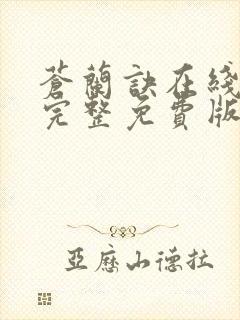 蒼蘭訣在綫
完整免費版
亞歷山德拉